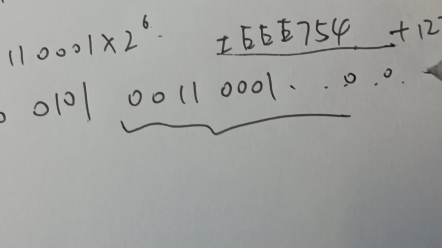 110001×2⁶. IEEE754 +12
0 0101 0011 0001....0.0.